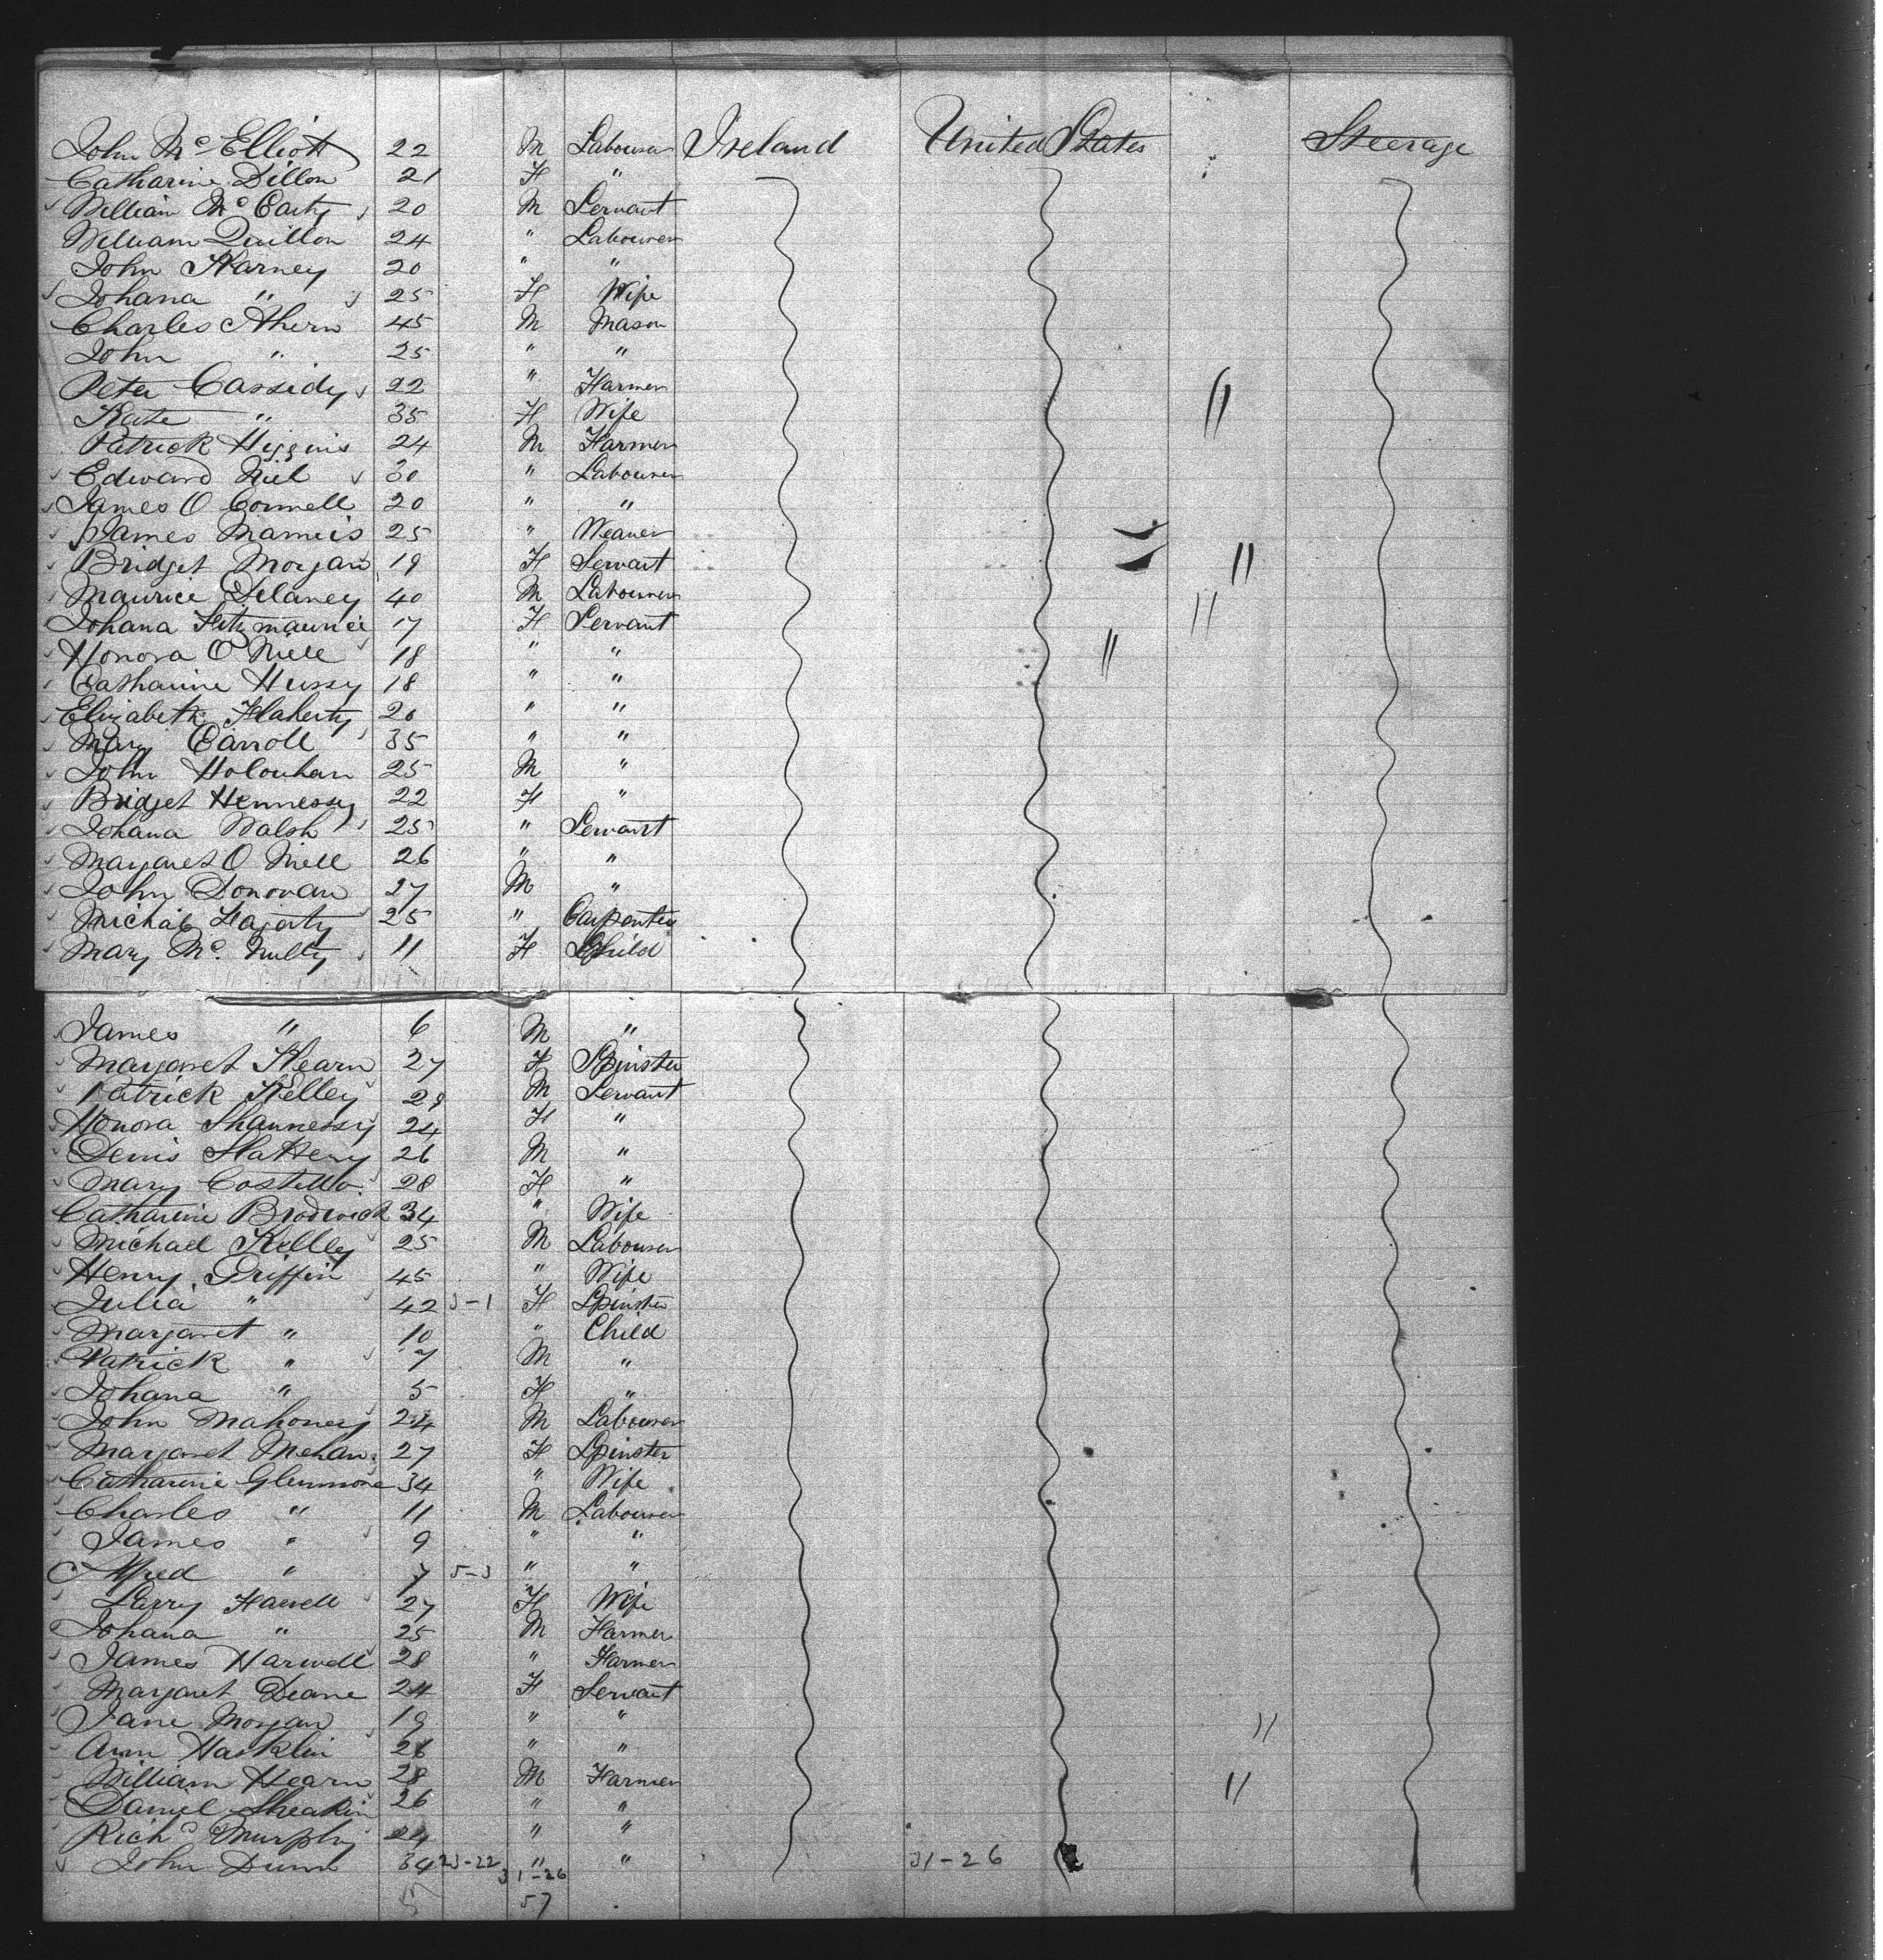 John McElliott 22 M Labourer Ireland United States Steerage
Catharine Dillon 21 F "
William McCarty 20 M Servant
William Quillon 24 " Labourer
John Karney 20 " "
Johana " 25 F Wife
Charles Ahern 45 M Mason
John " 25 " "
Peter Cassidy 22 " Farmer
Kate " 35 F Wife
Patrick Higgins 24 M Farmer
Edward Niel 30 " Labourer
James O Connell 20 " "
James 25 " Weaver
Bridget Morgan 19 F Servant
Maurice Delaney 40 M Labourer
Johana Fitzmaurice 17 F Servant
Honora O Niell 18 " "
Catharine Hussy 18 " "
Elizabeth Flaherty 20 " "
Mary Carroll 35 " "
John Holouhan 25 M "
Bridget Hennessy 22 F "
Johana Walsh 25 " Servant
Margaret O Niell 26 " "
John Donovan 27 M "
Michal Hagarty 25 " Carpenter
Mary Mc Nulty 11 F Child
James " 6 M "
Margaret Hearn 27 F Spinster
Patrick Kelley 29 M Servant
Honora Shannessy 24 F "
Denis Slattery 26 M "
Mary Costello 28 F "
Catharine Brodrick 34 " Wife
Michael Kelley 25 M Labourer
Henry Griffin 45 " Wife
Julia " 42 5-1 F Spinster
Margaret " 10 " Child
Patrick " 7 M "
Johana " 5 F "
John Mahoney 24 M Labourer
Margaret Mehan 27 F Spinster
Catharine Glenmore 34 " Wife
Charles " 11 M Labourer
James " 9 " "
Alfred " 7 5-3 " "
Larry Harwell 27 F Wife
Johana " 25 M Farmer
James Harwell 28 " Farmer
Margaret Deane 24 F Servant
Jane Morgan 19 " "
Ann Hasklin 26 " "
William Hearn 28 M Farmer
Daniel Sheakin 26 " "
Richd Murphy 24 " "
John Dunn 34 23-22 " " 31-26
31-26
57 57